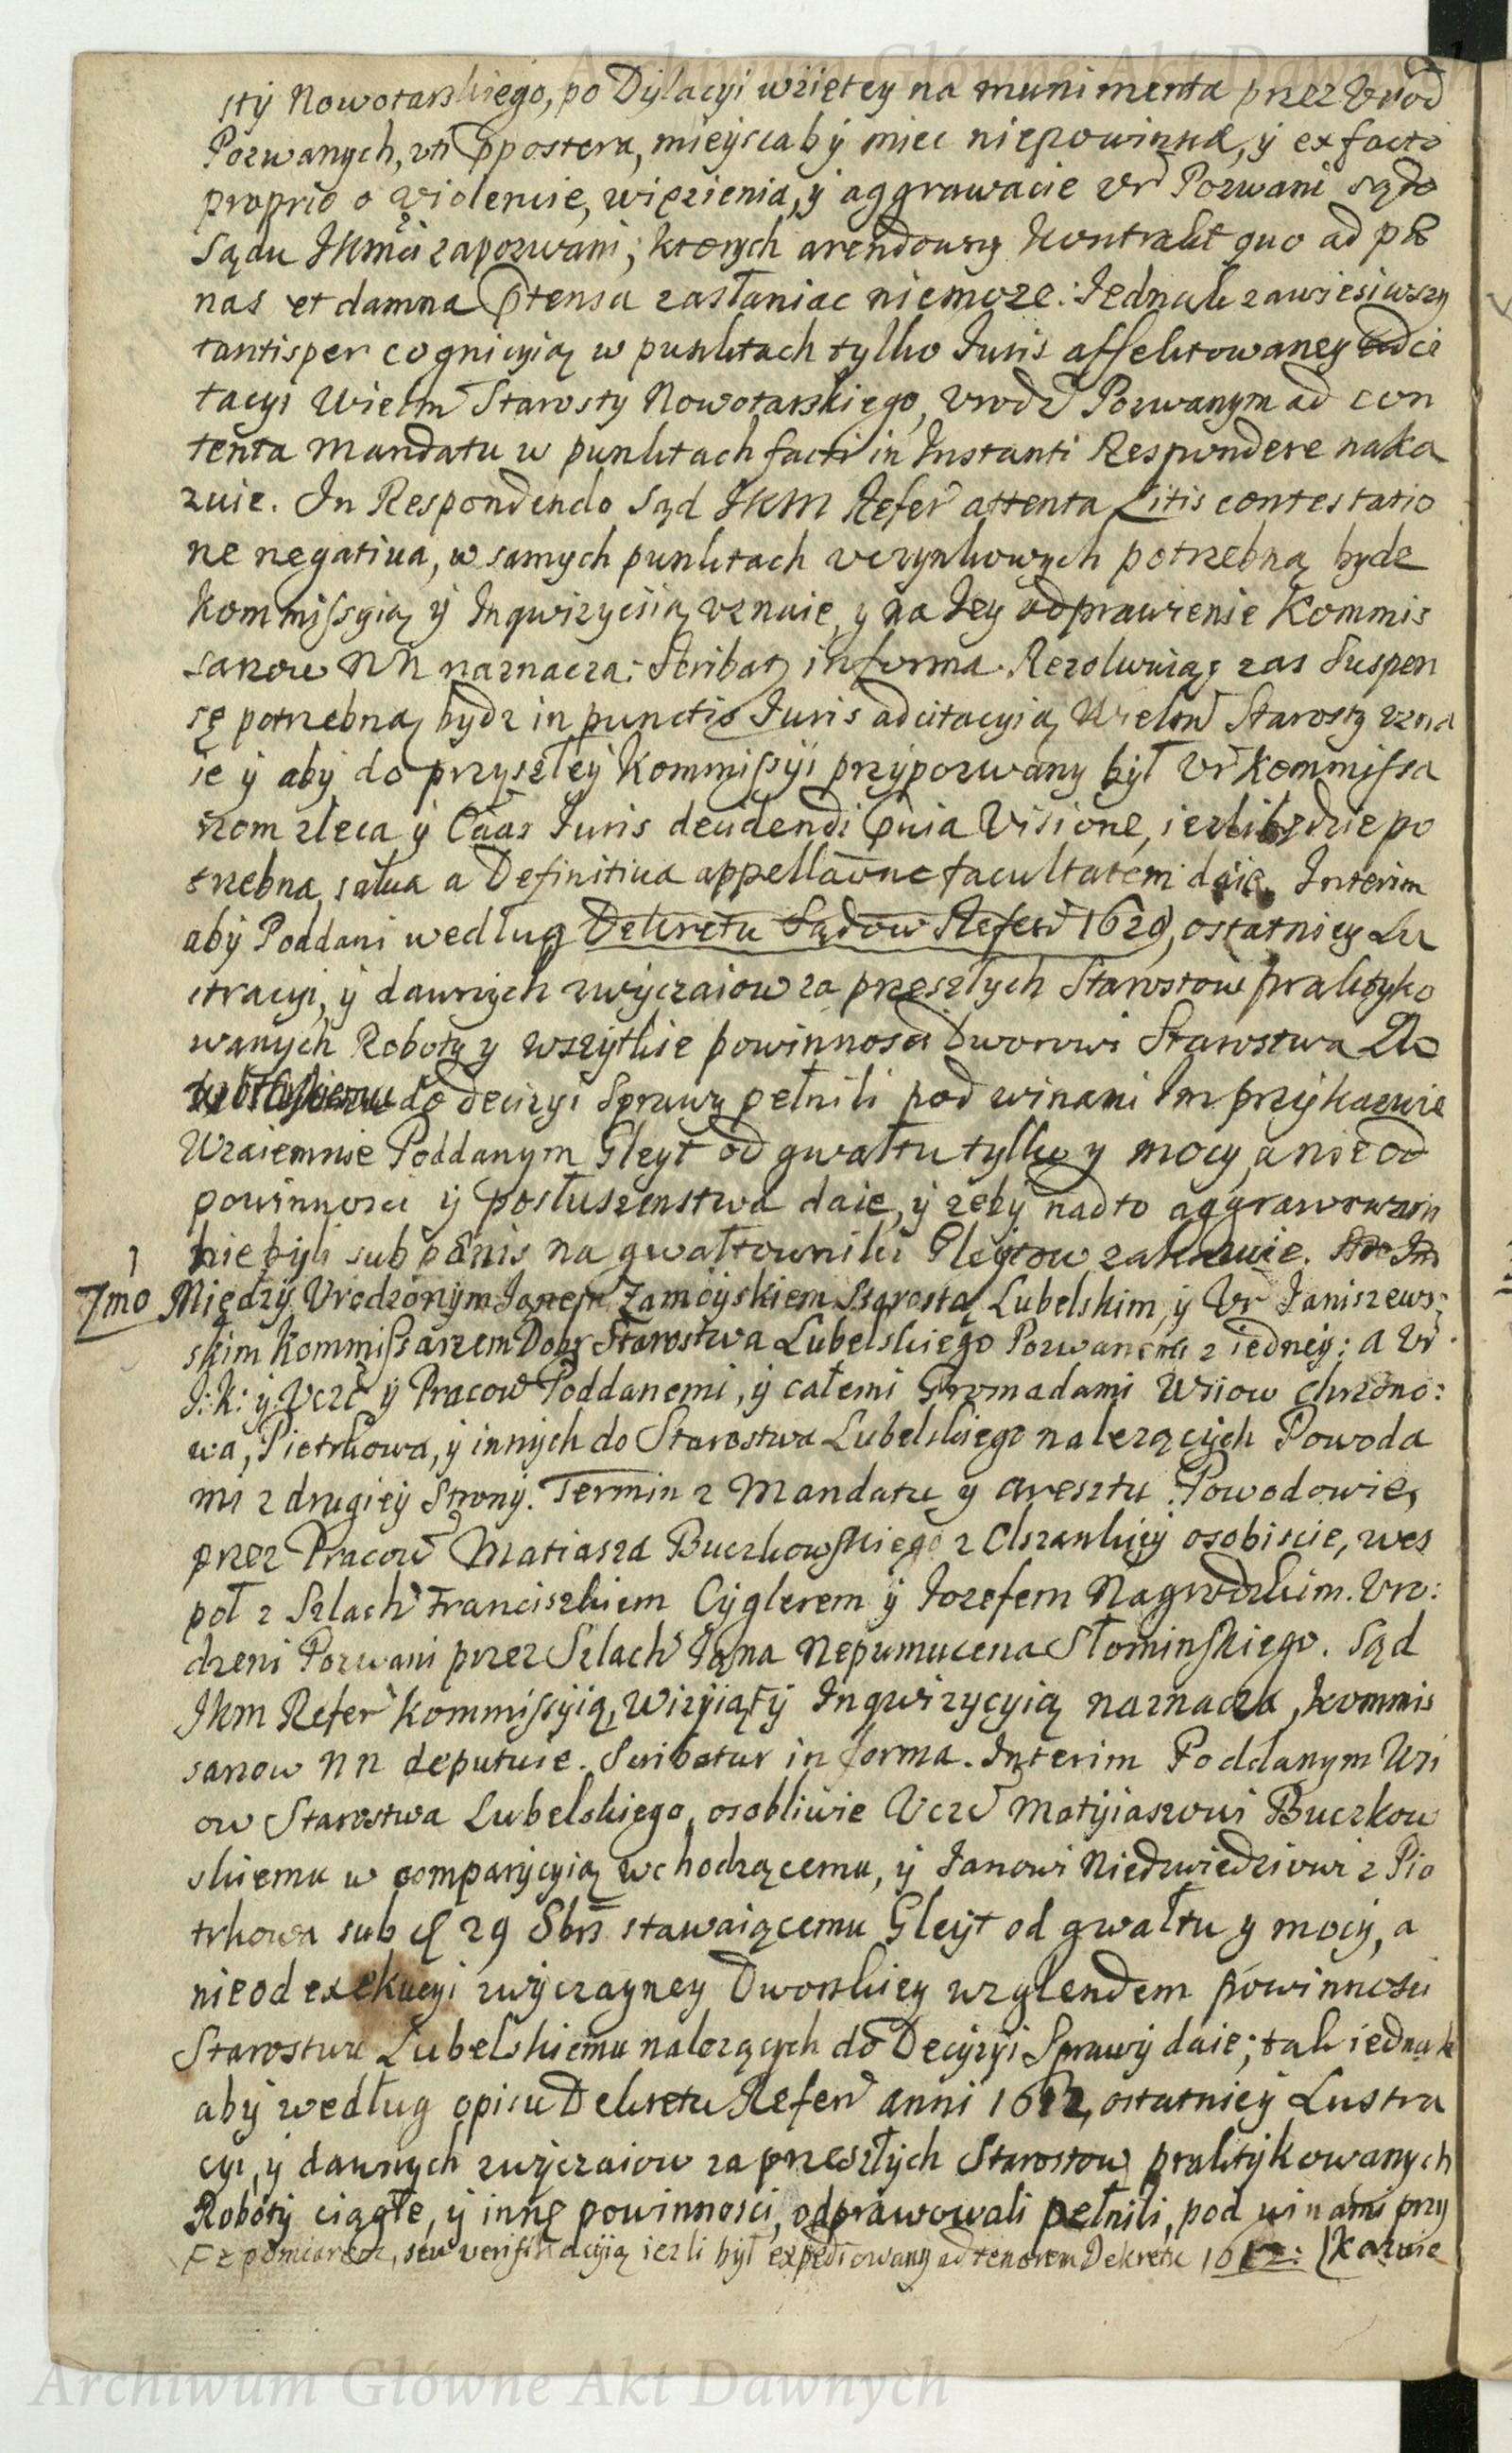 Archiwum Główne Akt Dawnych
sty Nowotarskiego, po Dylacyi wziętey na munimenta przez Vrod
Pozwanych, vti p̄postera, mieysca by miec niepowinna, y ex facto
proprio o violencie, więzienia, y aggrawacie Vr Pozwani są do
Sądu JKMci zapozwani; ktorych arendowny Kontrakt quo ad pœ
nas et damna p̄tensa zasłaniac niemoze: Jednak zawiesiwszy
tantisper cognicyią w punktach tylko Juris affektowaney adci
tacyi Wielm Starosty Nowotarskiego, Vrodz Pozwanym ad con
tenta Mandatu w punktach facti in Instanti Respondere naka
zuie. In Respondendo Sąd JKM Refer attenta Litis contestatio
ne negatiua, w samych punktach vczynkowych potrzebną bydz
Kommissyią y Inqwizycyią vznaie, y na Jey odprawienie Kommis
sarzow NN naznacza: Scribatz in forma. Rezolwuiąc zas Suspen
sę potrzebną bydz in puncto Juris adcitacyią Wielm Starosty vzna
ie y aby do przyszłey Kommissyi przypozwany był Vr Kommissa
rzom zleca y Caas Juris decidendi p̄uia Visione, iezli będzie po
trzebna, salua a Definitiua appellaōne facultatem daie. Interim
aby Poddani według Dekretu Sądow Refer 1629, ostatniey Lu
stracyi, y dawnych zwyczaiow za przeszłych Starostow praktyko
wanych Roboty y wszytkie powinnosci Dworowi Starostwa
do decizyi Sprawy pełnili pod winami Im przykazuie
Wzaiemnie Poddanym Gleyt od gwałtu tylko y mocy, a nie od
powinnosci y posłuszenstwa daie, y zeby nadto aggrawowani
nie byli sub pœnis na gwałtowniki Gleytow zakazuie.
7mo Między Vrodzonym Janem Zamoyskiem Starostą Lubelskim, y Vr Janiszews:
skim Kommissarzem Dobr Starostwa Lubelskiego Pozwanemi z iedney: a Vr
J: K: y Vczć y Pracow Poddanemi, y całemi Gromadami Wsiow Chrzono:
wa, Piotrkowa, y innych do Starostwa Lubelskiego nalezących Powoda
mi z drugiey Strony. Termin z Mandatu y aresztu. Powodowie,
przez Pracow Matiasza Buczkowskiego z Olszankiey osobiscie, wes
poł z Szlach Franciszkiem Cyglerem y Jozefem Nagrodzkim. Vro:
dzeni Pozwani przez Szlach Jana Nepomucena Słominskiego. Sąd
JKM Refer Kommissyią, Wizyią, y Inqwizycyią naznacza, Kommis
sarzow NN deputuie. Scribatur in forma. Interim Poddanym Wsi
ow Starostwa Lubelskiego, osobliwie Vczć Matyiaszowi Buczkow
skiemu w comparycyią wchodzącemu, y Janowi Niedzwiedziowi z Pio
trkowa sub 29 8bris stawaiącemu Gleyt od gwałtu y mocy, a
nie od exekucyi zwyczayney Dworskiey wzglendem powinnosci
Starostwu Lubelskiemu nalezących do Decyzyi Sprawy daie; tak iednak
aby według opisu Dekretu Refer anni 1612, ostatniey Lustra
cyi, y dawnych zwyczaiow za przeszłych Starostow praktykowanych
Roboty ciągłe, y inne powinnosci, odprawowali pełnili, pod winami przy
pomiarem, seu verifikacyią iezli był expediowany ad tenorem Dekretu 1612: (kazuie
Archiwum Główne Akt Dawnych